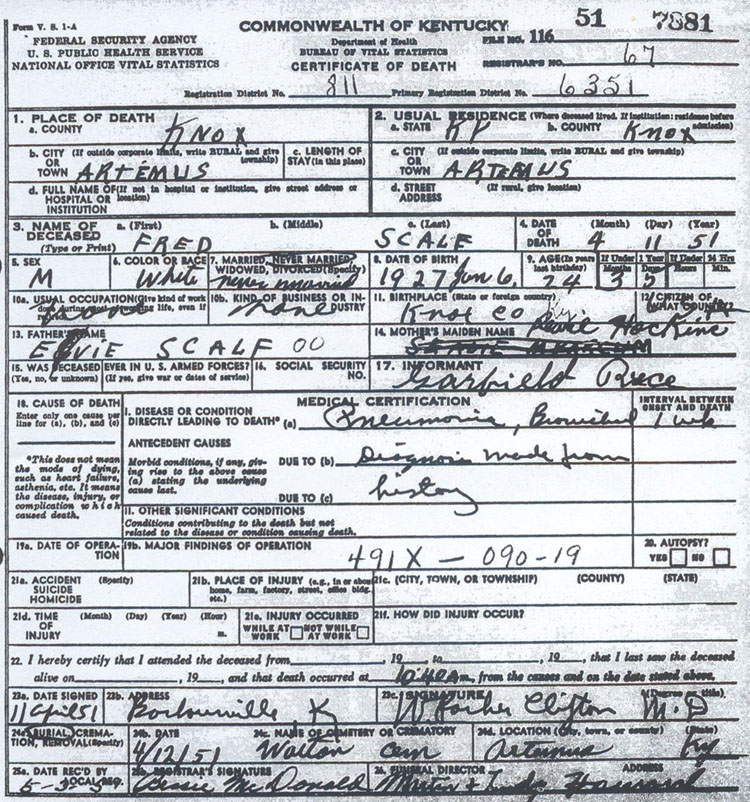 Form V. S. 1-A
FEDERAL SECURITY AGENCY
U. S. PUBLIC HEALTH SERVICE
NATIONAL OFFICE VITAL STATISTICS
COMMONWEALTH OF KENTUCKY
Department of Health
BUREAU OF VITAL STATISTICS
CERTIFICATE OF DEATH
FILE NO. 116 51 7881
REGISTRAR'S NO. 67
Registration District No. 811 Primary Registration District No. 6351
1. PLACE OF DEATH
a. COUNTY KNOX
2. USUAL RESIDENCE (Where deceased lived. If institution: residence before admission)
a. STATE KY b. COUNTY KNOX
b. CITY (If outside corporate limits, write RURAL and give township)
OR
TOWN ARTEMUS
c. LENGTH OF STAY (in this place)
c. CITY (If outside corporate limits, write RURAL and give township)
OR
TOWN ARTEMUS
d. FULL NAME OF (If not in hospital or institution, give street address or location)
HOSPITAL OR
INSTITUTION
d. STREET (If rural, give location)
ADDRESS
3. NAME OF DECEASED a. (First) b. (Middle) c. (Last)
(Type or Print) FRED SCALF
4. DATE OF DEATH (Month) (Day) (Year)
4 11 51
5. SEX
M
6. COLOR OR RACE
White
7. MARRIED, NEVER MARRIED, WIDOWED, DIVORCED (Specify)
never married
8. DATE OF BIRTH
1927 Jan 6,
9. AGE (In years last birthday)
24
If Under 1 Year Months Days
3 5
If Under 24 Hrs. Hours Min.
10a. USUAL OCCUPATION (Give kind of work done during most of working life, even if
none
10b. KIND OF BUSINESS OR INDUSTRY
none
11. BIRTHPLACE (State or foreign country)
Knox Co Ky
12. CITIZEN OF WHAT COUNTRY?
13. FATHER'S NAME
SCALF 00
14. MOTHER'S MAIDEN NAME
15. WAS DECEASED EVER IN U. S. ARMED FORCES?
(Yes, no, or unknown) (If yes, give war or dates of service)
16. SOCIAL SECURITY NO.
17. INFORMANT
Garfield
18. CAUSE OF DEATH
Enter only one cause per line for (a), (b), and (c)
*This does not mean the mode of dying, such as heart failure, asthenia, etc. It means the disease, injury, or complication which caused death.
MEDICAL CERTIFICATION
INTERVAL BETWEEN ONSET AND DEATH
I. DISEASE OR CONDITION
DIRECTLY LEADING TO DEATH* (a) Pneumonia, Bronchial 1 wk
ANTECEDENT CAUSES
Morbid conditions, if any, giving rise to the above cause (a) stating the underlying cause last.
DUE TO (b) Diagnosis made from
DUE TO (c) history
II. OTHER SIGNIFICANT CONDITIONS
Conditions contributing to the death but not
related to the disease or condition causing death.
19a. DATE OF OPERATION
19b. MAJOR FINDINGS OF OPERATION
491X — 090-19
20. AUTOPSY?
YES NO
21a. ACCIDENT (Specify)
SUICIDE
HOMICIDE
21b. PLACE OF INJURY (e.g., in or about home, farm, factory, street, office bldg. etc.)
21c. (CITY, TOWN, OR TOWNSHIP) (COUNTY) (STATE)
21d. TIME OF INJURY (Month) (Day) (Year) (Hour)
m.
21e. INJURY OCCURRED
WHILE AT WORK NOT WHILE AT WORK
21f. HOW DID INJURY OCCUR?
22. I hereby certify that I attended the deceased from , 19 to , 19 , that I last saw the deceased
alive on , 19 and that death occurred at 10:40 a m., from the causes and on the date stated above.
23a. DATE SIGNED
11 April 51
23b. ADDRESS
Barbourville Ky
23c. SIGNATURE (Degree or title)
W. Parker Clifton M.D
24a. BURIAL, CREMATION, REMOVAL (Specify)
24b. DATE
4/12/51
24c. NAME OF CEMETERY OR CREMATORY
Walton Cem
24d. LOCATION (City, town, or county) (State)
Artemus Ky
25a. DATE REC'D BY LOCAL REG.
25b. REGISTRAR'S SIGNATURE
Bessie McDonald
26. FUNERAL DIRECTOR ADDRESS